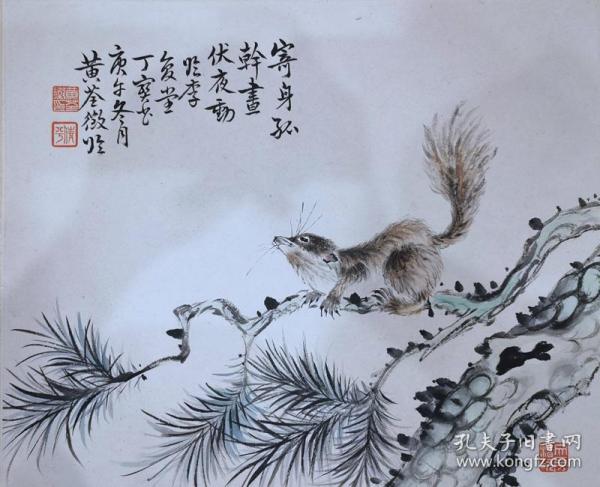 寄身孤
幹晝
伏夜動
临李
復堂
丁寶書
庚午冬月
黄荃微临
孔夫子旧書网
www.kongfz.com